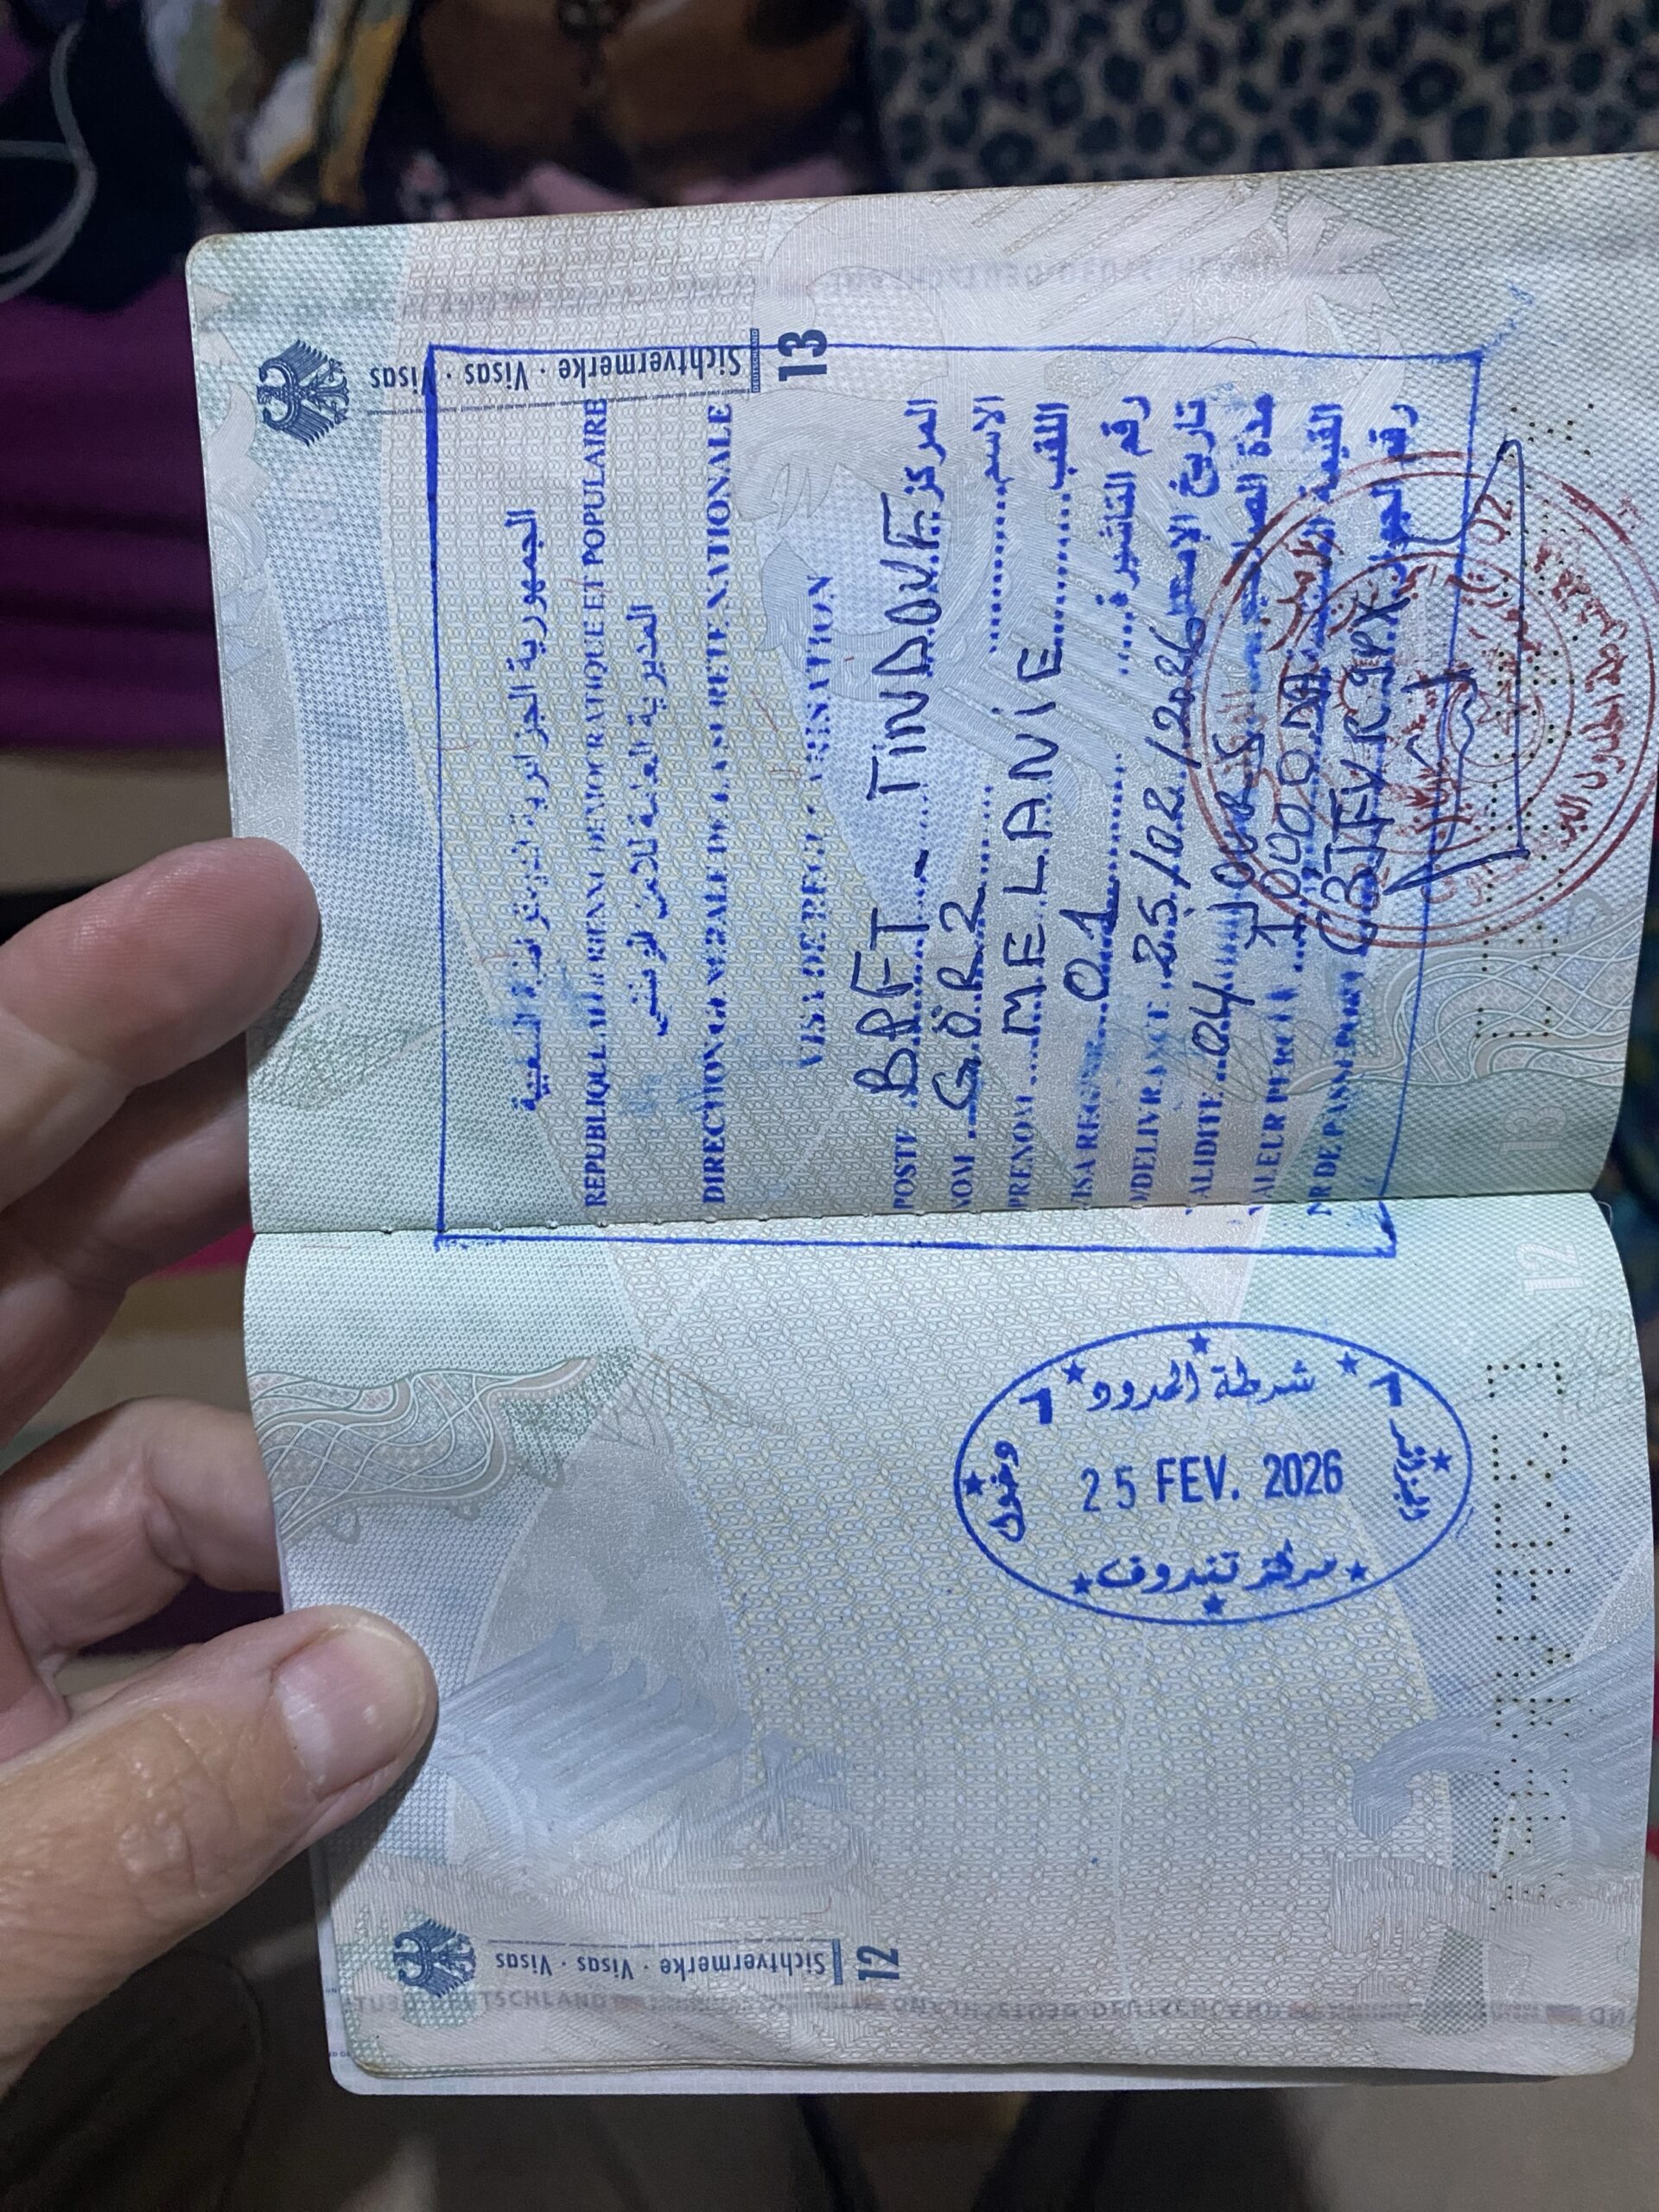 Sichtvermerke · Visas · Visas
13
الجمهورية الجزائرية الديمقراطية الشعبية
REPUBLIQUE ALGERIENNE DEMOCRATIQUE ET POPULAIRE
المديرية العامة للأمن الوطني
DIRECTION GENERALE DE LA SURETE NATIONALE
VISA DE REGULARISATION
POSTE BPFT - TINDOUF المركز
NOM GÖRZ الاسم
PRENOM MELANIE اللقب
VISA REGUSE 01 رقم التأشيرة
D/DELIVRANCE 25/02/2026 تاريخ
VALIDITE 04 JOURS مدة
VALEUR PERCU 1000 DA القيمة
NR DE PASSEPORT رقم الجواز
شرطة الحدود
دخول
25 FEV. 2026
الجزائر
مركز تندوف
Sichtvermerke · Visas · Visas
12